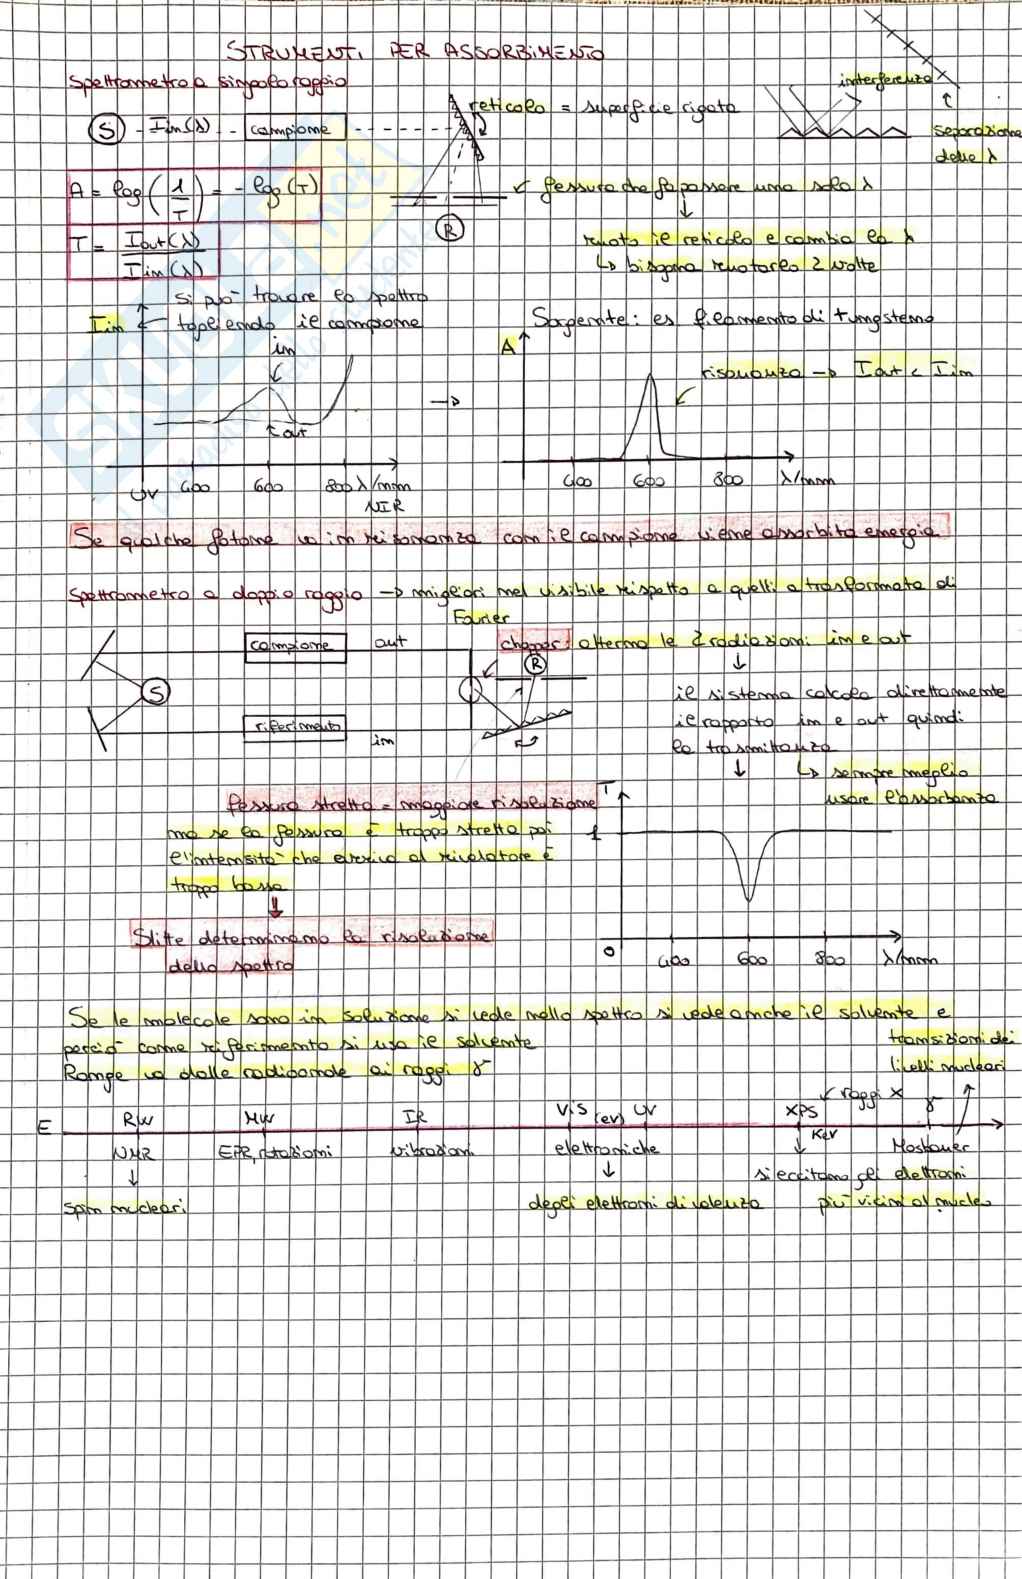 STRUMENTI PER ASSORBIMENTO
Spettrometro a singolo raggio
interferenza
reticolo = superficie rigata
S - Iin(λ) - campione
separazione
delle λ
A = log (1/T) = - log (T)
fessura che fa passare una sola λ
R
T = Iout(λ) / Iin(λ)
ruoto il reticolo e cambia la λ
↳ bisogna ruotarlo 2 volte
si può trovare lo spettro
Iin ← togliendo il campione
Sorgente: es filamento di tungsteno
in
A
risonanza → Iout < Iin
out
→
UV 400 600 800 λ/nm
NIR
400 600 800 λ/nm
Se qualche fotone va in risonanza con il campione viene assorbita energia
Spettrometro a doppio raggio → migliori nel visibile rispetto a quelli a trasformata di
Fourier
campione out
chopper: alterna le 2 radiazioni in e out
R
S
il sistema calcola direttamente
riferimento
il rapporto in e out quindi
in
la trasmittanza
↳ sempre meglio
usare l'assorbanza
fessura stretta = maggiore risoluzione
T
ma se la fessura è troppo stretta poi
1
l'intensità che arriva al rivelatore è
troppo bassa
Slitte determinano la risoluzione
dello spettro
0 400 600 800 λ/nm
Se le molecole sono in soluzione si vede nello spettro si vede anche il solvente e
perciò come riferimento si usa il solvente
transizioni dei
livelli nucleari
Range va dalle radiobande ai raggi γ
raggi X
E RW MW IR VIS (eV) UV XPS γ
KeV
NMR EPR, rotazioni vibrazioni elettroniche Mosbauer
si eccitano gli elettroni
spin nucleari degli elettroni di valenza più vicini al nucleo